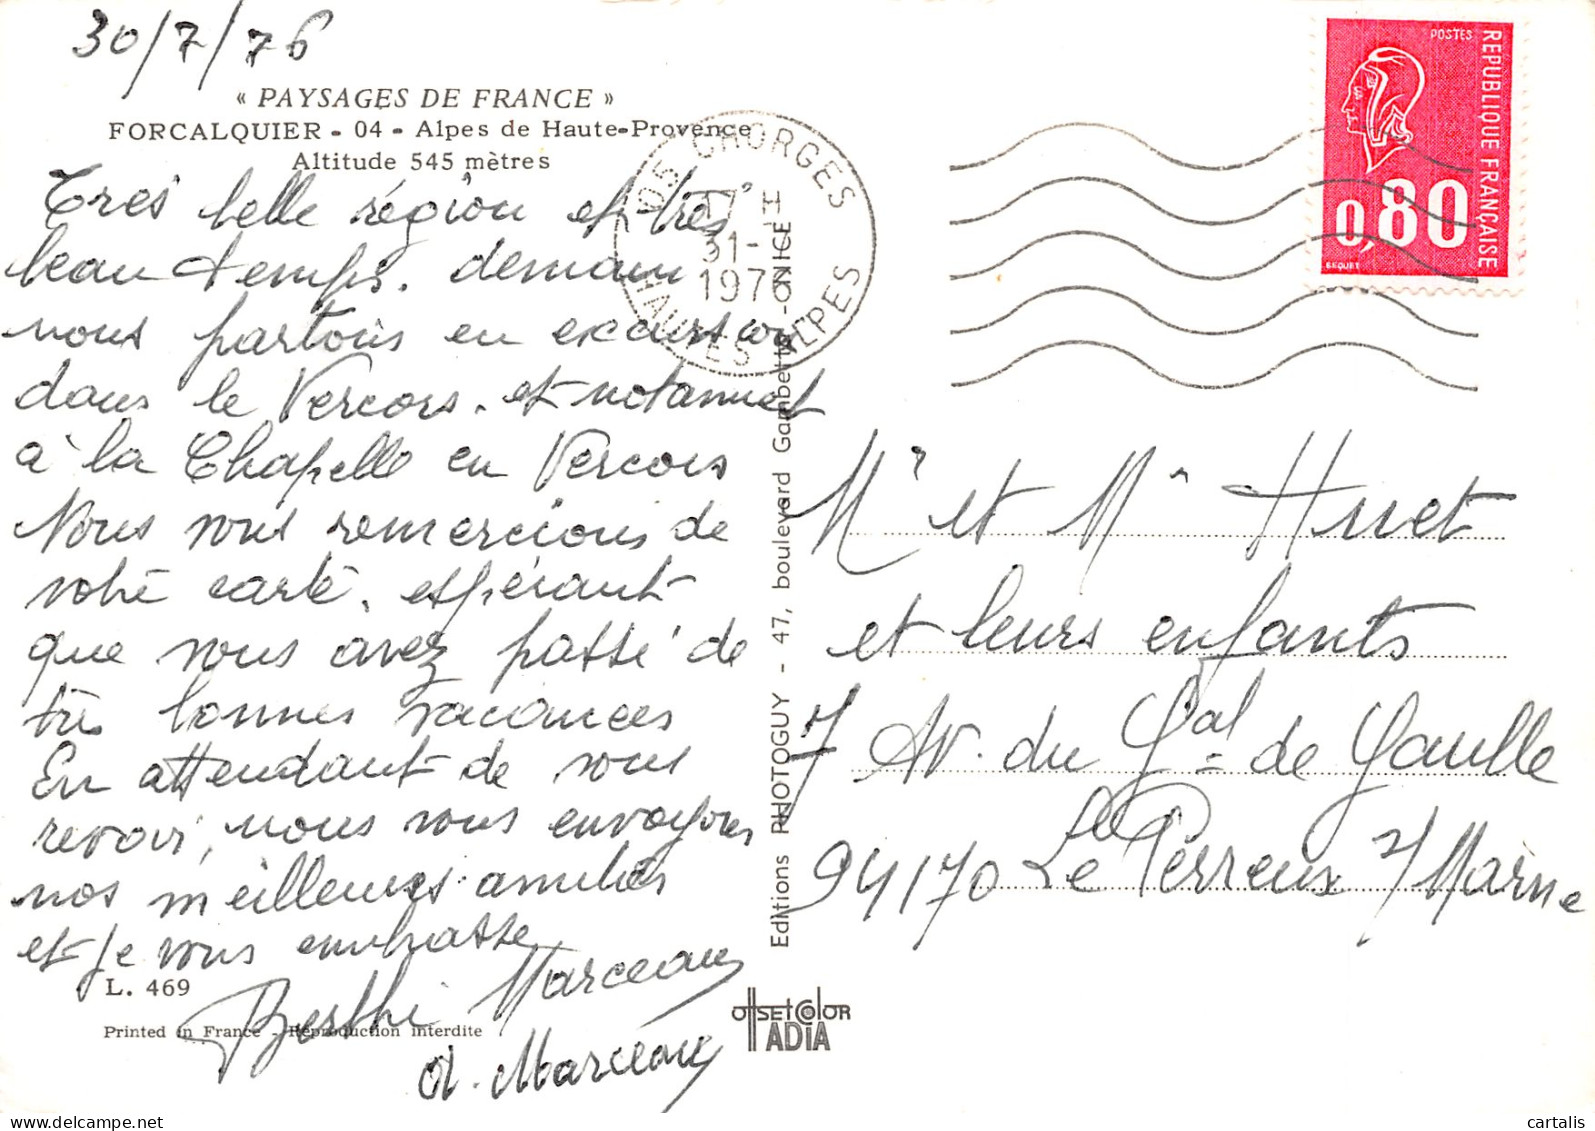 30/7/76
« PAYSAGES DE FRANCE »
FORCALQUIER - 04 - Alpes de Haute-Provence
Altitude 545 mètres
Très belle région et très
beau temps. demain
nous partons en excursion
dans le Vercors. et notamment
à la Chapelle en Vercors
Nous vous remercions de
votre carte, espérant
que vous avez passé de
très bonnes vacances
En attendant de vous
revoir, nous vous envoyons
nos meilleures amitiés
et je vous embrasse
Berthe Marceau
A. Marceau
L. 469
Printed in France - Réproduction interdite
Editions PHOTOGUY - 47, boulevard Gambetta - NICE
OFFSETCOLOR
ADIA
05 CHORGES
17 H
31-7
1976
HAUTES ALPES
POSTES
REPUBLIQUE FRANÇAISE
0,80
BEQUET
Mr et Me Huet
et leurs enfants
7 Av. du Gal de Gaulle
94170 Le Perreux s/Marne
cartalis
delcampe.net